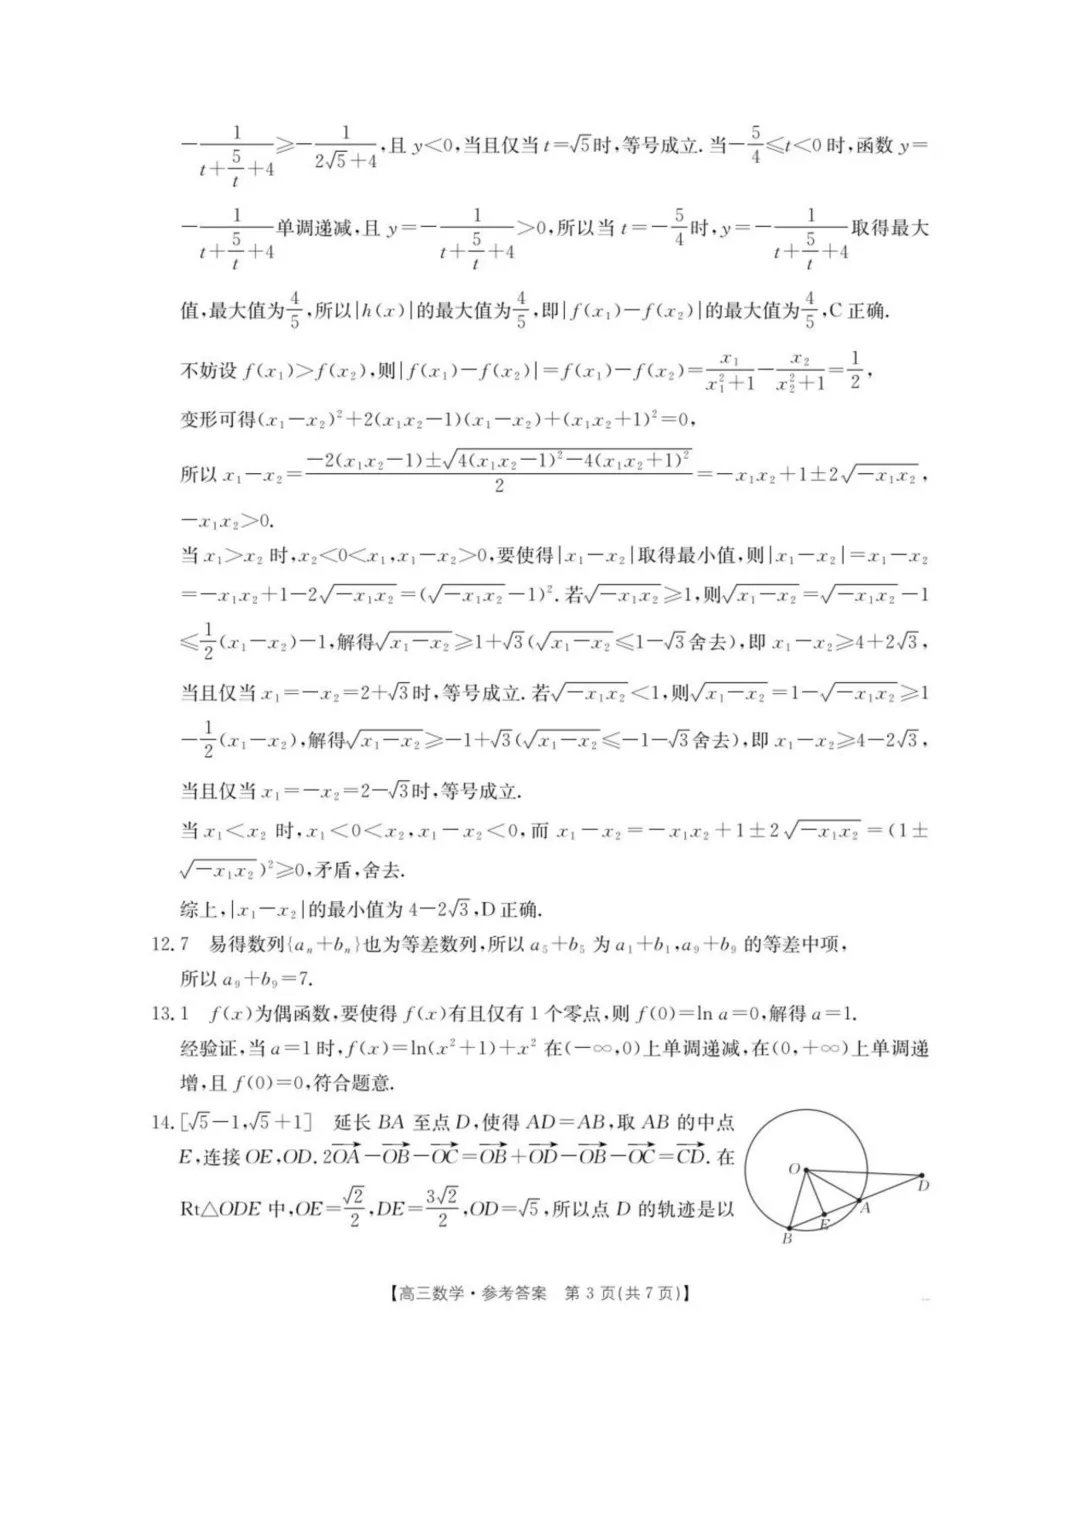 $-\frac{1}{t+\frac{5}{t}+4}\geqslant-\frac{1}{2\sqrt{5}+4}$,且 $y<0$,当且仅当 $t=\sqrt{5}$时,等号成立.当$-\frac{5}{4}\leqslant t<0$ 时,函数 $y=$
$-\frac{1}{t+\frac{5}{t}+4}$单调递减,且 $y=-\frac{1}{t+\frac{5}{t}+4}>0$,所以当 $t=-\frac{5}{4}$时,$y=-\frac{1}{t+\frac{5}{t}+4}$取得最大
值,最大值为$\frac{4}{5}$,所以$|h(x)|$的最大值为$\frac{4}{5}$,即$|f(x_1)-f(x_2)|$的最大值为$\frac{4}{5}$,C 正确.
不妨设 $f(x_1)>f(x_2)$,则$|f(x_1)-f(x_2)|=f(x_1)-f(x_2)=\frac{x_1}{x_1^2+1}-\frac{x_2}{x_2^2+1}=\frac{1}{2}$,
变形可得$(x_1-x_2)^2+2(x_1x_2-1)(x_1-x_2)+(x_1x_2+1)^2=0$,
所以 $x_1-x_2=\frac{-2(x_1x_2-1)\pm\sqrt{4(x_1x_2-1)^2-4(x_1x_2+1)^2}}{2}=-x_1x_2+1\pm2\sqrt{-x_1x_2}$,
$-x_1x_2>0$.
当 $x_1>x_2$ 时,$x_2<0<x_1$,$x_1-x_2>0$,要使得$|x_1-x_2|$取得最小值,则$|x_1-x_2|=x_1-x_2$
$=-x_1x_2+1-2\sqrt{-x_1x_2}=(\sqrt{-x_1x_2}-1)^2$.若$\sqrt{-x_1x_2}\geqslant1$,则$\sqrt{x_1-x_2}=\sqrt{-x_1x_2}-1$
$\leqslant\frac{1}{2}(x_1-x_2)-1$,解得$\sqrt{x_1-x_2}\geqslant1+\sqrt{3}$($\sqrt{x_1-x_2}\leqslant1-\sqrt{3}$舍去),即 $x_1-x_2\geqslant4+2\sqrt{3}$,
当且仅当 $x_1=-x_2=2+\sqrt{3}$时,等号成立.若$\sqrt{-x_1x_2}<1$,则$\sqrt{x_1-x_2}=1-\sqrt{-x_1x_2}\geqslant1$
$-\frac{1}{2}(x_1-x_2)$,解得$\sqrt{x_1-x_2}\geqslant-1+\sqrt{3}$($\sqrt{x_1-x_2}\leqslant-1-\sqrt{3}$舍去),即 $x_1-x_2\geqslant4-2\sqrt{3}$,
当且仅当 $x_1=-x_2=2-\sqrt{3}$时,等号成立.
当 $x_1<x_2$ 时,$x_1<0<x_2$,$x_1-x_2<0$,而 $x_1-x_2=-x_1x_2+1\pm2\sqrt{-x_1x_2}=(1\pm$
$\sqrt{-x_1x_2})^2\geqslant0$,矛盾,舍去.
综上,$|x_1-x_2|$的最小值为 $4-2\sqrt{3}$,D 正确.
12. 7 易得数列$\{a_n+b_n\}$也为等差数列,所以 $a_5+b_5$ 为 $a_1+b_1$,$a_9+b_9$ 的等差中项,
所以 $a_9+b_9=7$.
13. 1 $f(x)$为偶函数,要使得 $f(x)$有且仅有 1 个零点,则 $f(0)=\ln a=0$,解得 $a=1$.
经验证,当 $a=1$ 时,$f(x)=\ln(x^2+1)+x^2$ 在$(-\infty,0)$上单调递减,在$(0,+\infty)$上单调递
增,且 $f(0)=0$,符合题意.
14. $[\sqrt{5}-1,\sqrt{5}+1]$ 延长 $BA$ 至点 $D$,使得 $AD=AB$,取 $AB$ 的中点
$E$,连接 $OE$,$OD$. $2\overrightarrow{OA}-\overrightarrow{OB}-\overrightarrow{OC}=\overrightarrow{OB}+\overrightarrow{OD}-\overrightarrow{OB}-\overrightarrow{OC}=\overrightarrow{CD}$. 在
Rt△$ODE$ 中,$OE=\frac{\sqrt{2}}{2}$,$DE=\frac{3\sqrt{2}}{2}$,$OD=\sqrt{5}$,所以点 $D$ 的轨迹是以
O
D
A
E
B
【高三数学·参考答案 第 3 页(共 7 页)】